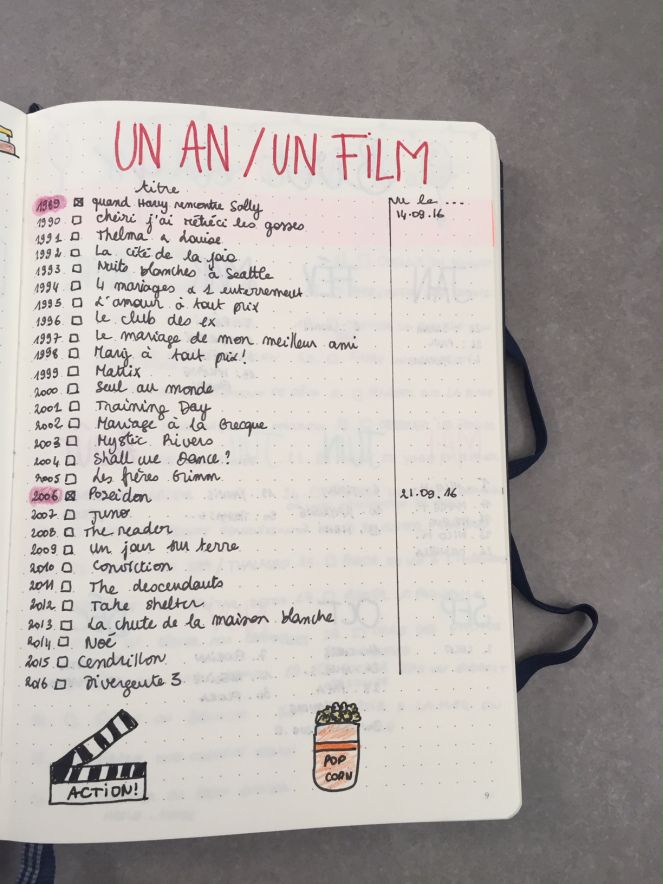 UN AN / UN FILM
titre
vu le ...
1989 quand Harry rencontre Sally 14.09.16
1990 chéri j'ai rétréci les gosses
1991 Thelma & Louise
1992 La cité de la joie
1993 Nuits blanches à Seattle
1994 4 mariages & 1 enterrement
1995 L'amour à tout prix
1996 Le club des ex
1997 Le mariage de mon meilleur ami
1998 Mary à tout prix!
1999 Matrix
2000 Seul au monde
2001 Training Day
2002 Mariage à la Grecque
2003 Mystic Rivers
2004 Shall we Dance?
2005 Les frères Grimm
2006 Poseidon 21.09.16
2007 Juno
2008 The reader
2009 un jour sur terre
2010 Conviction
2011 The descendants
2012 Take shelter
2013 La chute de la maison blanche
2014 Noé
2015 Cendrillon
2016 Divergente 3
POP
CORN
ACTION!
9